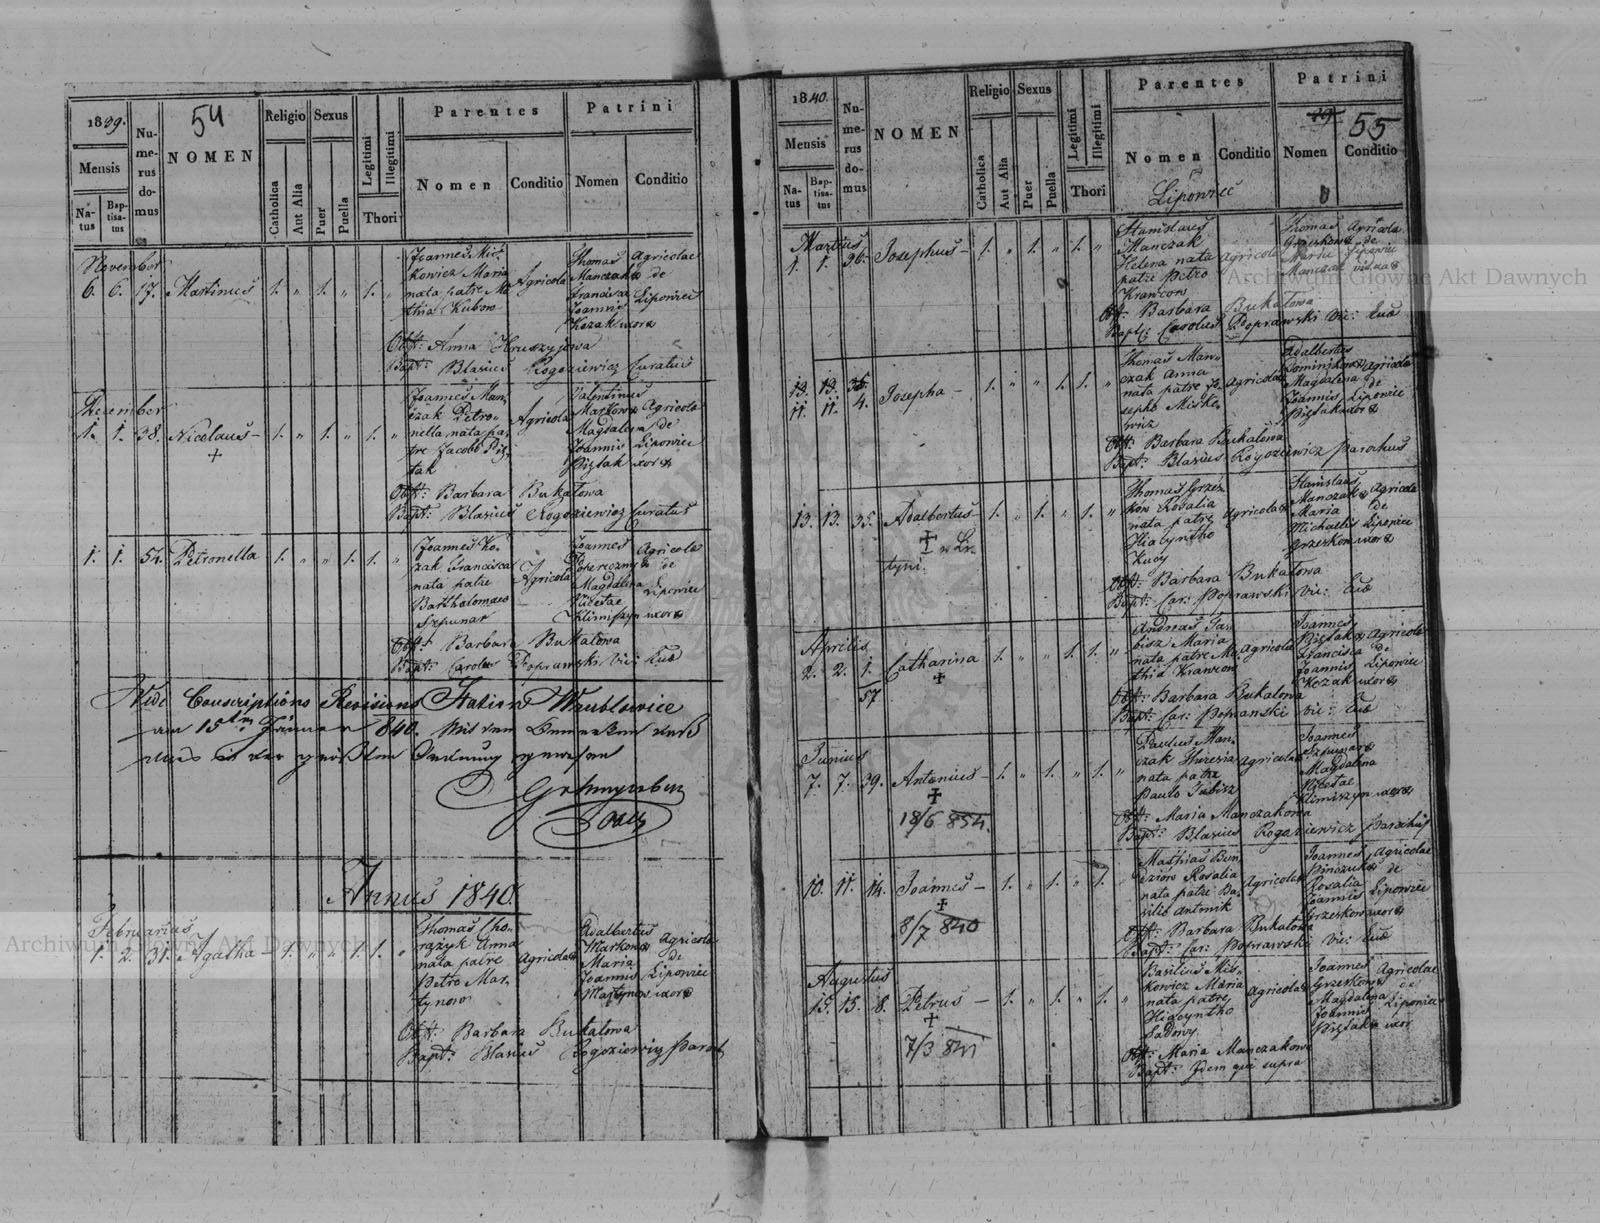 1839.
Mensis
Natus
Baptisatus
Numerus domus
54
NOMEN
Religio
Catholica
Aut Alia
Sexus
Puer
Puella
Legitimi
Illegitimi
Thori
Parentes
Nomen
Conditio
Patrini
Nomen
Conditio
November
6. 6. 17. Martinus 1. „ 1. „ 1. „
Joannes Mić
kowicz Maria
nata patre Ma
thia Kubow
Agricola
Thomas
Manczak &
Francisca
Joannis
Kozak uxor
Agricolae
de
Lipowiec
Obst: Anna Hruszyjowa
Bapt: Blasius Rogoziewicz Curatus
December
1. 1. 38. Nicolaus – 1. „ 1. „ 1. „
+
Joannes Man
czak Petro
nella nata pa
tre Jacobo Pię
tak
Agricola
Valentinus
Markow &
Magdalena
Joannis
Piętak uxor
Agricola
de
Lipowiec
Obst: Barbara Bukatowa
Bapt: Blasius Rogoziewicz Curatus
1. 1. 54. Petronella 1. „ „ 1. 1. „
Joannes Ko
zak Francisca
nata patre
Bartholomaeo
Szpunar
Agricola
Joannes
Magdalena
Klimiszyn uxor
Agricola
de
Lipowiec
Obst: Barbara Bukatowa
Bapt: Carolus Poprawski Vic: Euä
Vide Conscriptions Revisions Station Wrublowice
am 15ten Jänner 840.
Annus 1840.
Februarius
1. 2. 31. Agatha – 1. „ „ 1. 1. „
Thomas Cho
rążyk Anna
nata patre
Petro Mar
tynow
Agricola
Adalbertus
Markow &
Maria
Joannis
Martynow uxor
Agricola
de
Lipowiec
Obst: Barbara Bukatowa
Bapt: Blasius Rogoziewicz Paroch
1840.
Mensis
Natus
Baptisatus
Numerus domus
NOMEN
Religio
Catholica
Aut Alia
Sexus
Puer
Puella
Legitimi
Illegitimi
Thori
Parentes
Nomen
Conditio
Patrini
55
Nomen
Conditio
Lipowiec
Martius
1. 1. 36. Josephus – 1. „ 1. „ 1. „
Stanislaus
Manczak
Helena nata
patre Petro
Krawcow
Agricola
Thomas
Grzeskow &
Maria
Manczak vidua
Agricola
de
Lipowiec
Obst: Barbara Bukatowa
Bapt: Carolus Poprawski Vic: Euä
13. 13. 35.
11. 11. 4. Josepha – 1. „ „ 1. 1. „
Thomas Man
czak Anna
nata patre Jo
sepho Mićko
wicz
Agricola
Adalbertus
Dominikow &
Magdalena
Joannis
Piętak uxor
Agricola
de
Lipowiec
Obst: Barbara Bukatowa
Bapt: Blasius Rogoziewicz Parochus
13. 13. 35. Adalbertus – 1. „ 1. „ 1. „
+
Thomas Grzes
kow Rosalia
nata patre
Hiacyntho
Kucy
Agricola
Stanislaus
Manczak &
Maria
Michaelis
Grzeskow uxor
Agricola
de
Lipowiec
Obst: Barbara Bukatowa
Bapt: Car: Poprawski Vic: Euä
Aprilis
2. 2. 1. Catharina 1. „ „ 1. 1. „
57
+
Andreas Ja
bisz Maria
nata patre Ma
thia Krawcow
Agricola
Joannes
Piętak &
Francisca
Joannis
Kozak uxor
Agricola
de
Lipowiec
Obst: Barbara Bukatowa
Bapt: Car: Poprawski Vic: Euä
Junius
7. 7. 39. Antonius – 1. „ 1. „ 1. „
+
18/6 854.
Paulus Man
czak Theresia
nata patre
Paulo Jabisz
Agricola
Joannes
Szpunar &
Magdalena
Klimiszyn uxor
Obst: Maria Manczakowa
Bapt: Blasius Rogoziewicz Parochus
10. 11. 14. Joannes – 1. „ 1. „ 1.
+
8/7 840
Mathias Bun
dziow Rosalia
nata patre Ba
silio Antonik
Agricola
Joannes
Pinczuk &
Rosalia
Joannis
Grzeskow uxor
Agricolae
de
Lipowiec
Obst: Barbara Bukatowa
Bapt: Car: Poprawski Vic: Euä
Augustus
15. 15. 8. Petrus – 1. „ 1. „ 1. „
+
7/3 841
Basilius Mić
kowicz Maria
nata patre
Hiacyntho
Sadowy
Agricola
Joannes
Grzeskow &
Magdalena
Joannis
Piętak uxor
Agricolae
de
Lipowiec
Obst: Maria Manczakowa
Bapt: Idem qui supra
Archiwum Główne Akt Dawnych
Archiwum Główne Akt Dawnych